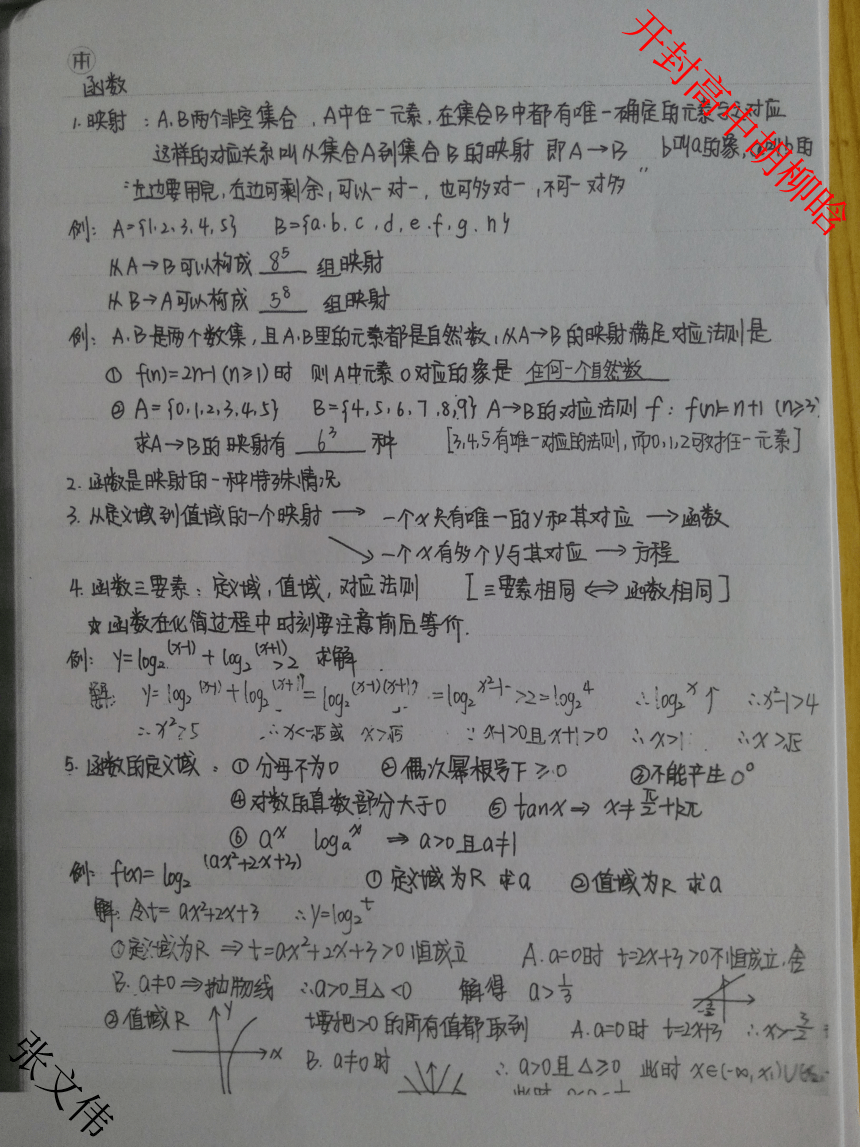 函数
1. 映射：A.B两个非空集合，A中任一元素，在集合B中都有唯一确定的元素与之对应
这样的对应关系叫从集合A到集合B的映射 即A→B b叫a的象，
"左边要用完，右边可剩余，可以一对一，也可多对一，不可一对多"
例：A={1.2.3.4.5} B={a.b.c.d.e.f.g.h}
从A→B可以构成 8⁵ 组映射
从B→A可以构成 5⁸ 组映射
例：A.B是两个数集，且A.B里的元素都是自然数，从A→B的映射满足对应法则是
① f(n)=2n-1 (n≥1)时 则A中元素0对应的象是 任何一个自然数
② A={0.1.2.3.4.5} B={4.5.6.7.8.9} A→B的对应法则 f：f(n)=n+1 (n≥3)
求A→B的映射有 6³ 种 [3,4,5有唯一对应的法则，而0,1,2可对任一元素]
2. 函数是映射的一种特殊情况
3. 从定义域到值域的一个映射 → 一个x只有唯一的y和其对应 → 函数
↘ 一个x有多个y与其对应 → 方程
4. 函数三要素：定义域，值域，对应法则 [三要素相同 ⟺ 函数相同]
☆ 函数在化简过程中时刻要注意前后等价.
例：y=log₂(x-1) + log₂(x+1) >2 求解
解：y=log₂(x-1)+log₂(x+1)=log₂(x-1)(x+1) =log₂x²-1 >2=log₂4 ∴log₂x↑ ∴x²-1>4
∴x²>5 ∴x<-√5或 x>√5 ∵x-1>0且x+1>0 ∴x>1 ∴x>√5
5. 函数的定义域：① 分母不为0 ② 偶次幂根号下≥0 ③不能产生0⁰
④ 对数的真数部分大于0 ⑤ tanx⇒ x≠π/2+kπ
⑥ aˣ logₐx ⇒ a>0且a≠1
例：f(x)=log₂(ax²+2x+3) ① 定义域为R 求a ②值域为R 求a
解：令t=ax²+2x+3 ∴y=log₂t
①定义域为R ⇒t=ax²+2x+3>0恒成立 A. a=0时 t=2x+3>0不恒成立.舍
B. a≠0⇒抛物线 ∴a>0且△<0 解得 a>1/3
-3/2
②值域R y x t要把>0的所有值都取到 A. a=0时 t=2x+3 ∴x>-3/2
B. a≠0时 ∴a>0且△≥0 此时 x∈(-∞,x₁)∪(x₂
此时
开封高中胡柳晗
张文伟